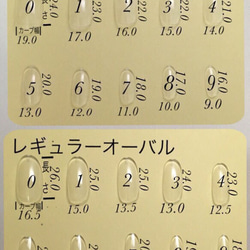 0 1 2 3 4
長さ 24.0 23.0 22.0 22.0 21.0
カーブ幅
19.0 17.0 16.0 15.0 14.0
5 6 7 8 9
20.0 19.0 18.0 17.0 16.0
13.0 12.0 11.0 10.0 9.0
レギュラーオーバル
0 1 2 3 4
長さ 26.0 25.0 25.0 24.0 23.0
カーブ幅
16.5 15.0 13.5 13.0 12.5